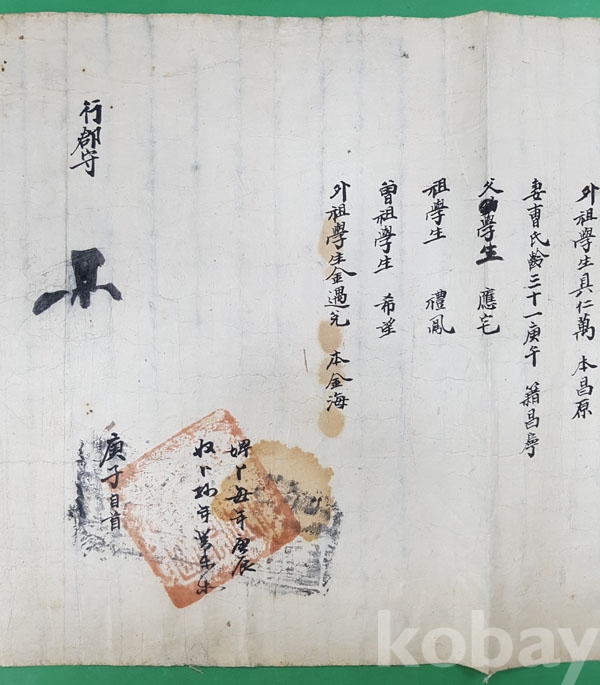 外祖學生具仁萬 本昌原
妻曺氏齡三十一庚午 籍昌寧
父學生 應宅
祖學生 禮鳳
曾祖學生 希望
外祖學生金遇兌 本金海
婢 丑年庚辰
年癸未生
庚子
行郡守
kobay